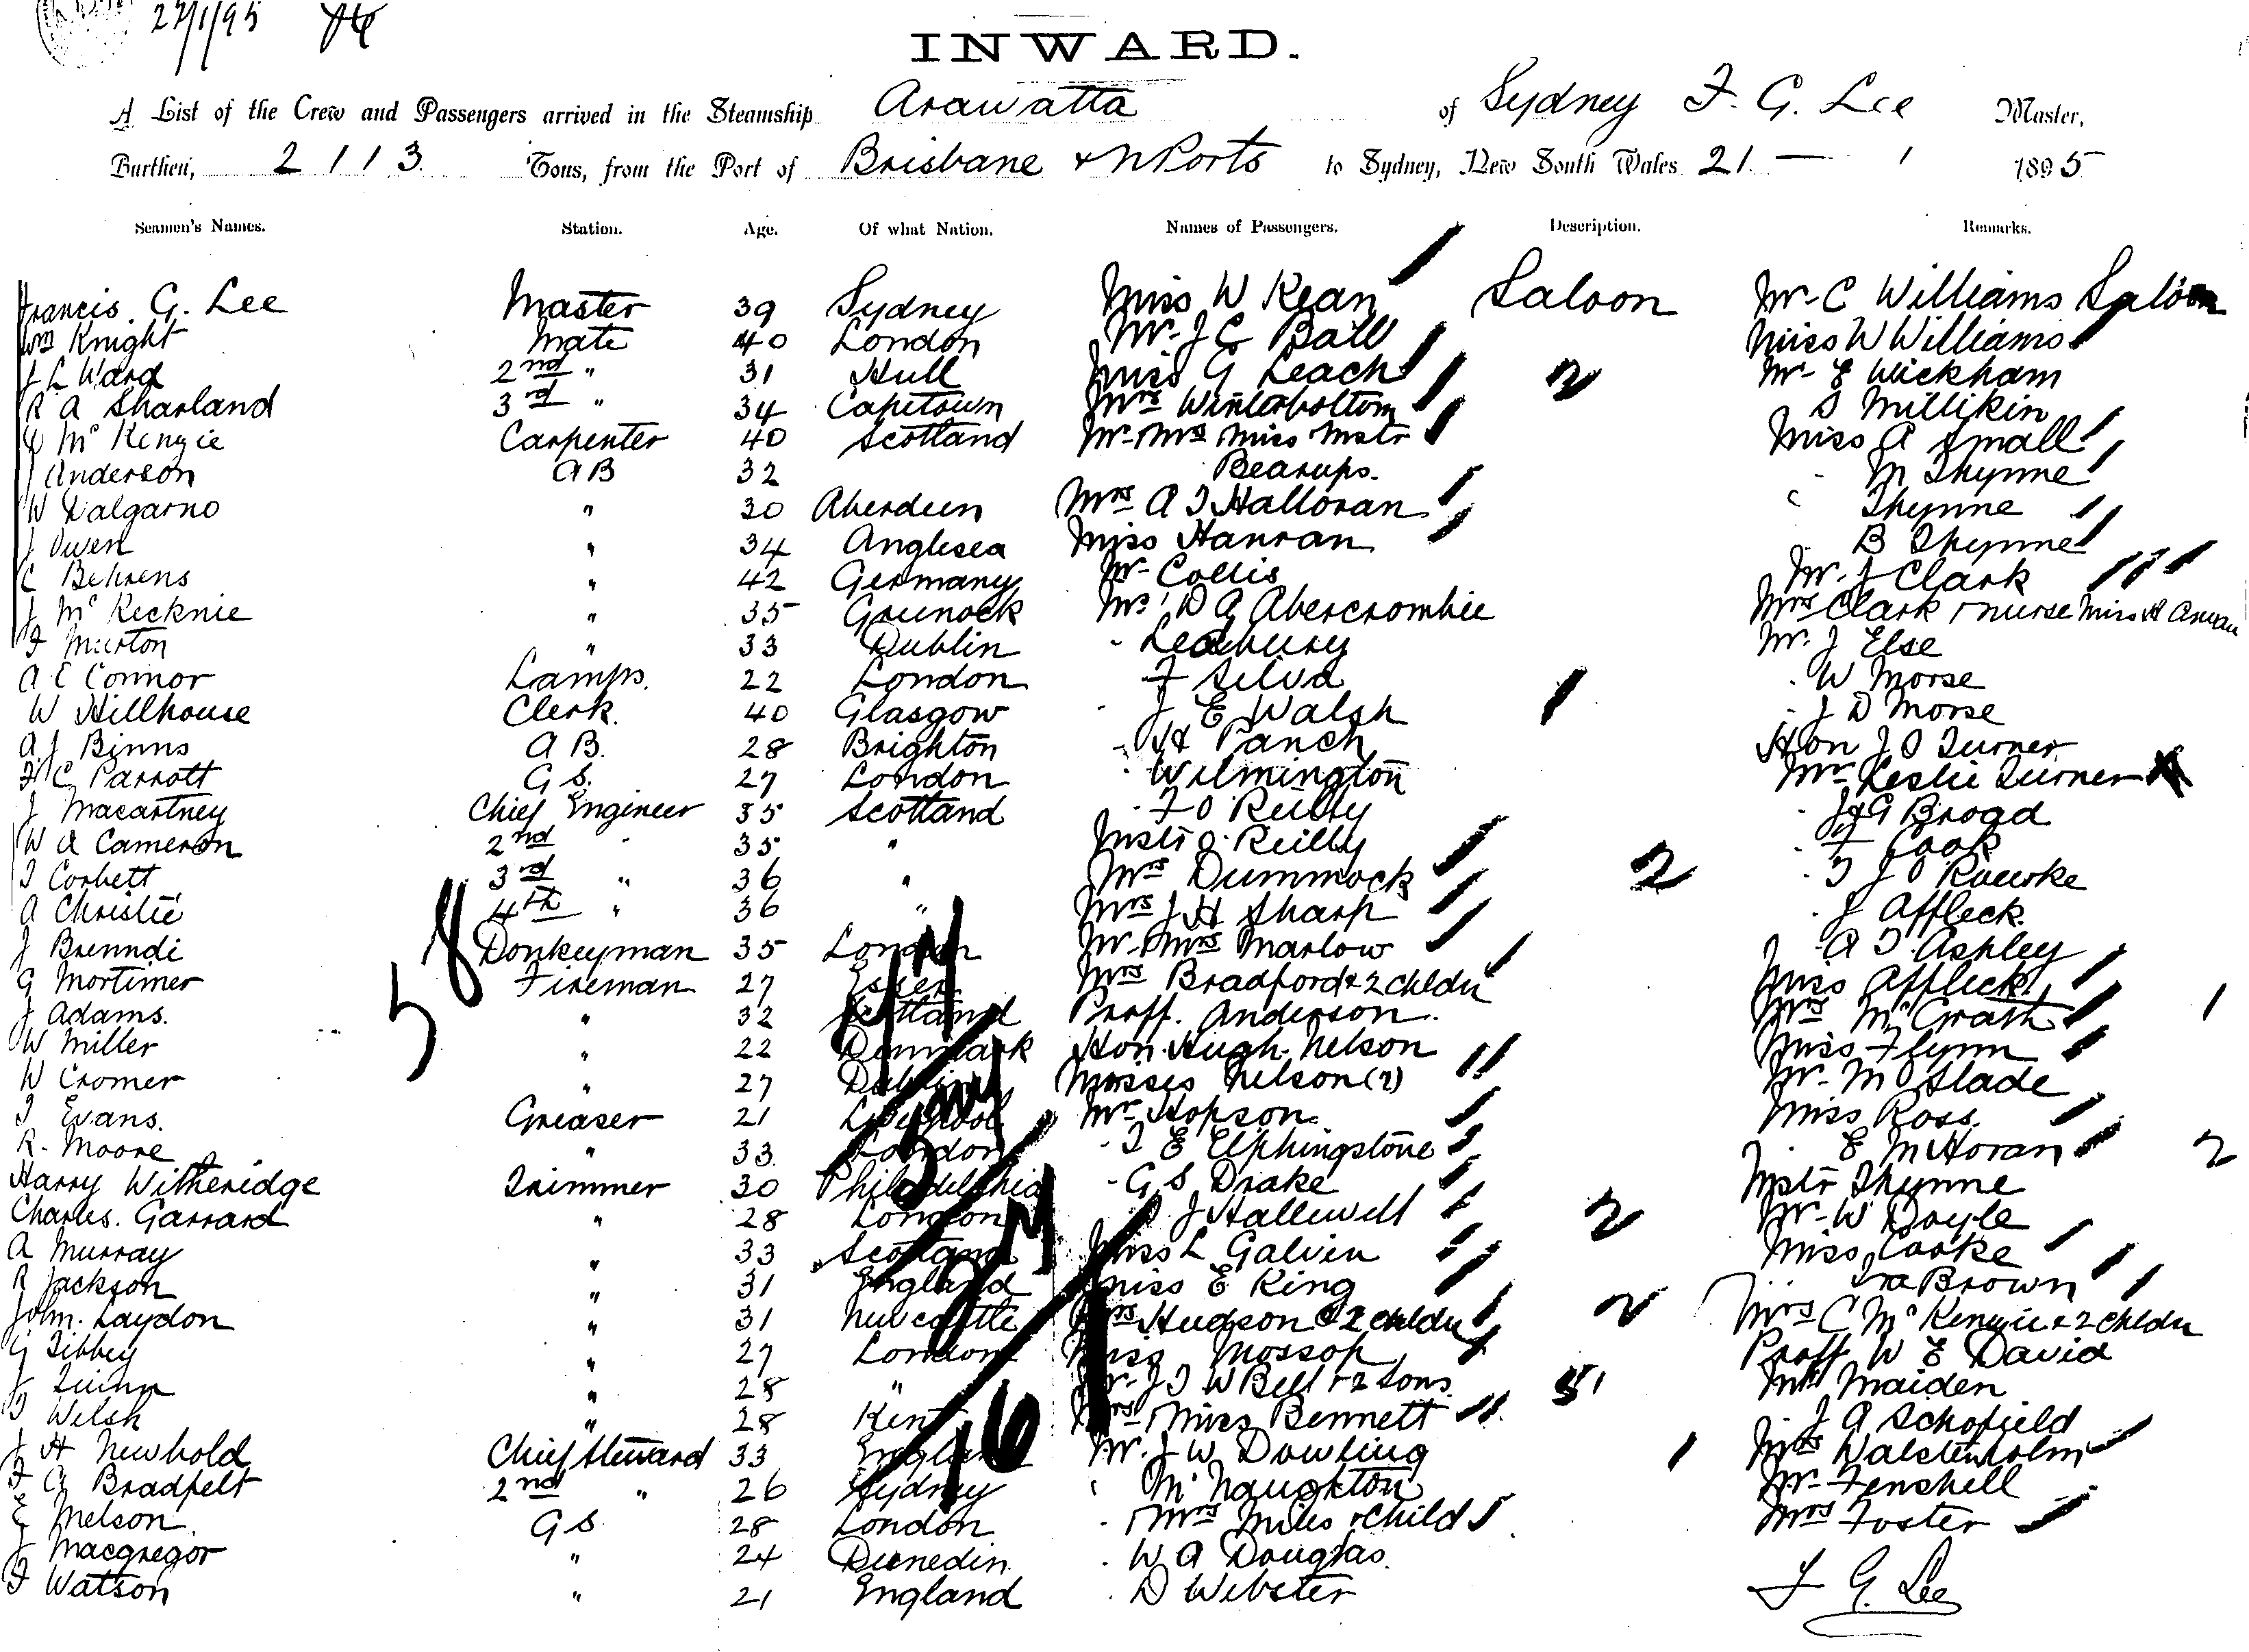 27/1/95
INWARD.
A List of the Crew and Passengers arrived in the Steamship Arawatta of Sydney F. G. Lee Master,
Burthen, 2113 Tons, from the Port of Brisbane & N Ports to Sydney, New South Wales 21 — 1 1895
Seamen's Names. Station. Age. Of what Nation. Names of Passengers. Description. Remarks.
Francis. G. Lee Master 39 Sydney Miss W Kean Saloon Mr C Williams Saloon
Wm Knight Mate 40 London Mr J C Ball Miss W Williams
J L Ward 2nd " 31 Hull Miss G Leach 2 Mr E Wickham
R A Sharland 3rd " 34 Capetown Mrs Winterbottom S Millikin
Mc Kenzie Carpenter 40 Scotland Mr Mrs Miss Mstr Miss A Small
J Anderson A B 32 Bearups. M Thynne
W Dalgarno " 30 Aberdeen Mrs A J Halloran Thynne
J Owen " 34 Anglesea Miss Hanran B Thynne
C Behrens " 42 Germany Mr Collis Mr. J Clark
J Mc Kecknie " 35 Greenock Mr D G Abercrombie Mrs Clark & nurse Miss H
F Murton " 33 Dublin " Ledbury Mr. J Else
A E Connor Lamps. 22 London F Silva W Morse
W Hillhouse Clerk. 40 Glasgow J E Walsh J D Morse
A J Binns A B. 28 Brighton H Panch Hon J O Turner
F C Parrott G S. 27 London Wilmington Mr Leslie Turner
J Macartney Chief Engineer 35 Scotland F O Reilly J G Broad
W A Cameron 2nd " 35 " Mstr O Reilly F Cook
T Corbett 3rd " 36 " Mrs Dummock 2 T J O Rourke
A Christie 4th " 36 " Mrs J H Sharp J Affleck.
J Brenndi Donkeyman 35 London Mr & Mrs Marlow A J Ashley
G Mortimer Fireman 27 Essex Mrs Bradford & 2 chldn Miss Affleck
J Adams. " 32 Scotland Proff. Anderson. Mrs McGrath 1
W Miller " 22 Denmark Hon. Hugh. Nelson Miss Flynn
W Cromer " 27 Dublin Misses Nelson (2) Mr. M Slade
T Evans. Greaser 21 Liverpool Mr Hopson. Miss Ross.
R. Moore " 33 London T E Elphingstone E M Horan 2
Harry Witheridge Trimmer 30 Philadelphia G S Drake Mstr Thynne
Charles. Garrard " 28 London J Hallewell 2 Mr W Doyle
A Murray " 33 Scotland Miss L Galvin Miss Cooke
R Jackson " 31 England Miss E King Ira Brown
John. Laydon " 31 Newcastle Mrs Hudson & 2 chldn 2 Mrs C Mc Kenzie & 2 chldn
G Tibbey " 27 London Miss Mossop Proff W E David
J Quinn " 28 " Mr. J T W Bell & 2 Sons 5 Mr Maiden
Welsh " 28 Kent Mrs & Miss Bennett J A Schofield
J H Newbold Chief Steward 33 England Mr. J W Dowling 1 Mrs Walstenholm
F G Bradfelt 2nd " 26 Sydney McNaughton Mr Fenshell
E Melson. G S 28 London & Mrs Miles & Child Mrs Foster
J Macgregor " 24 Dunedin. W A Douglas.
F Watson " 21 England D Webster F G. Lee
58